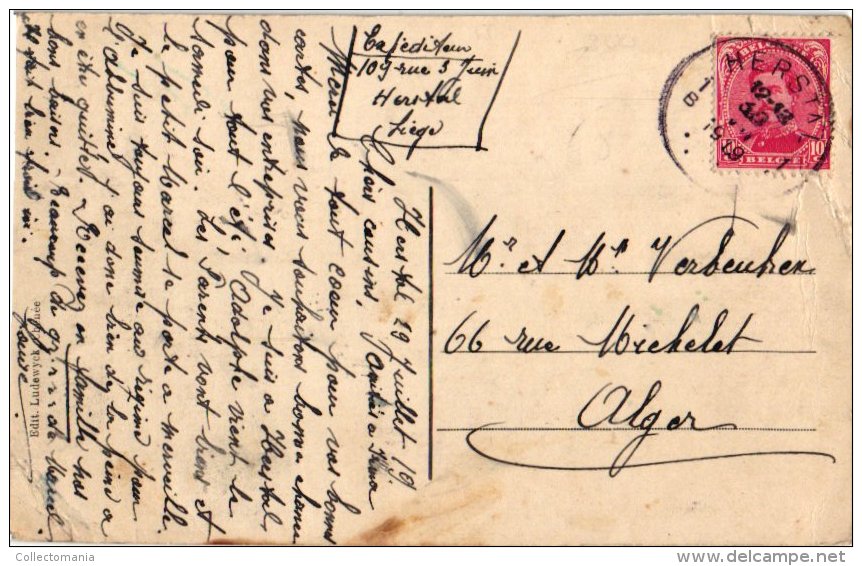 Expéditeur
109 rue 3 Juin
Herstal
Liège
HERSTAL
12-13
30
1919
BELGIQUE
10 10
BELGIË
Mr et Me Verbeuken
66 rue Michelet
Alger
Herstal 29 Juillet 19
Chers cousins,
Merci de tout coeur pour vos bonnes
cartes, nous vous souhaitons bonne chance
dans vos entreprises. Je suis à Herstal
pour tout l'été, Adolphe vient le
samedi soir. Les Parents vont bien et
le petit Marcel se porte à merveille.
Je suis toujours soumise au régime pour
l'albumine, j'ai donc bien de la peine à
en être quitte. Recevez en famille nos
bons baisers. Beaucoup de de Marcel
Il fait bien froid ici.
Edit. Ludewyck
Collectomania
delcampe.net